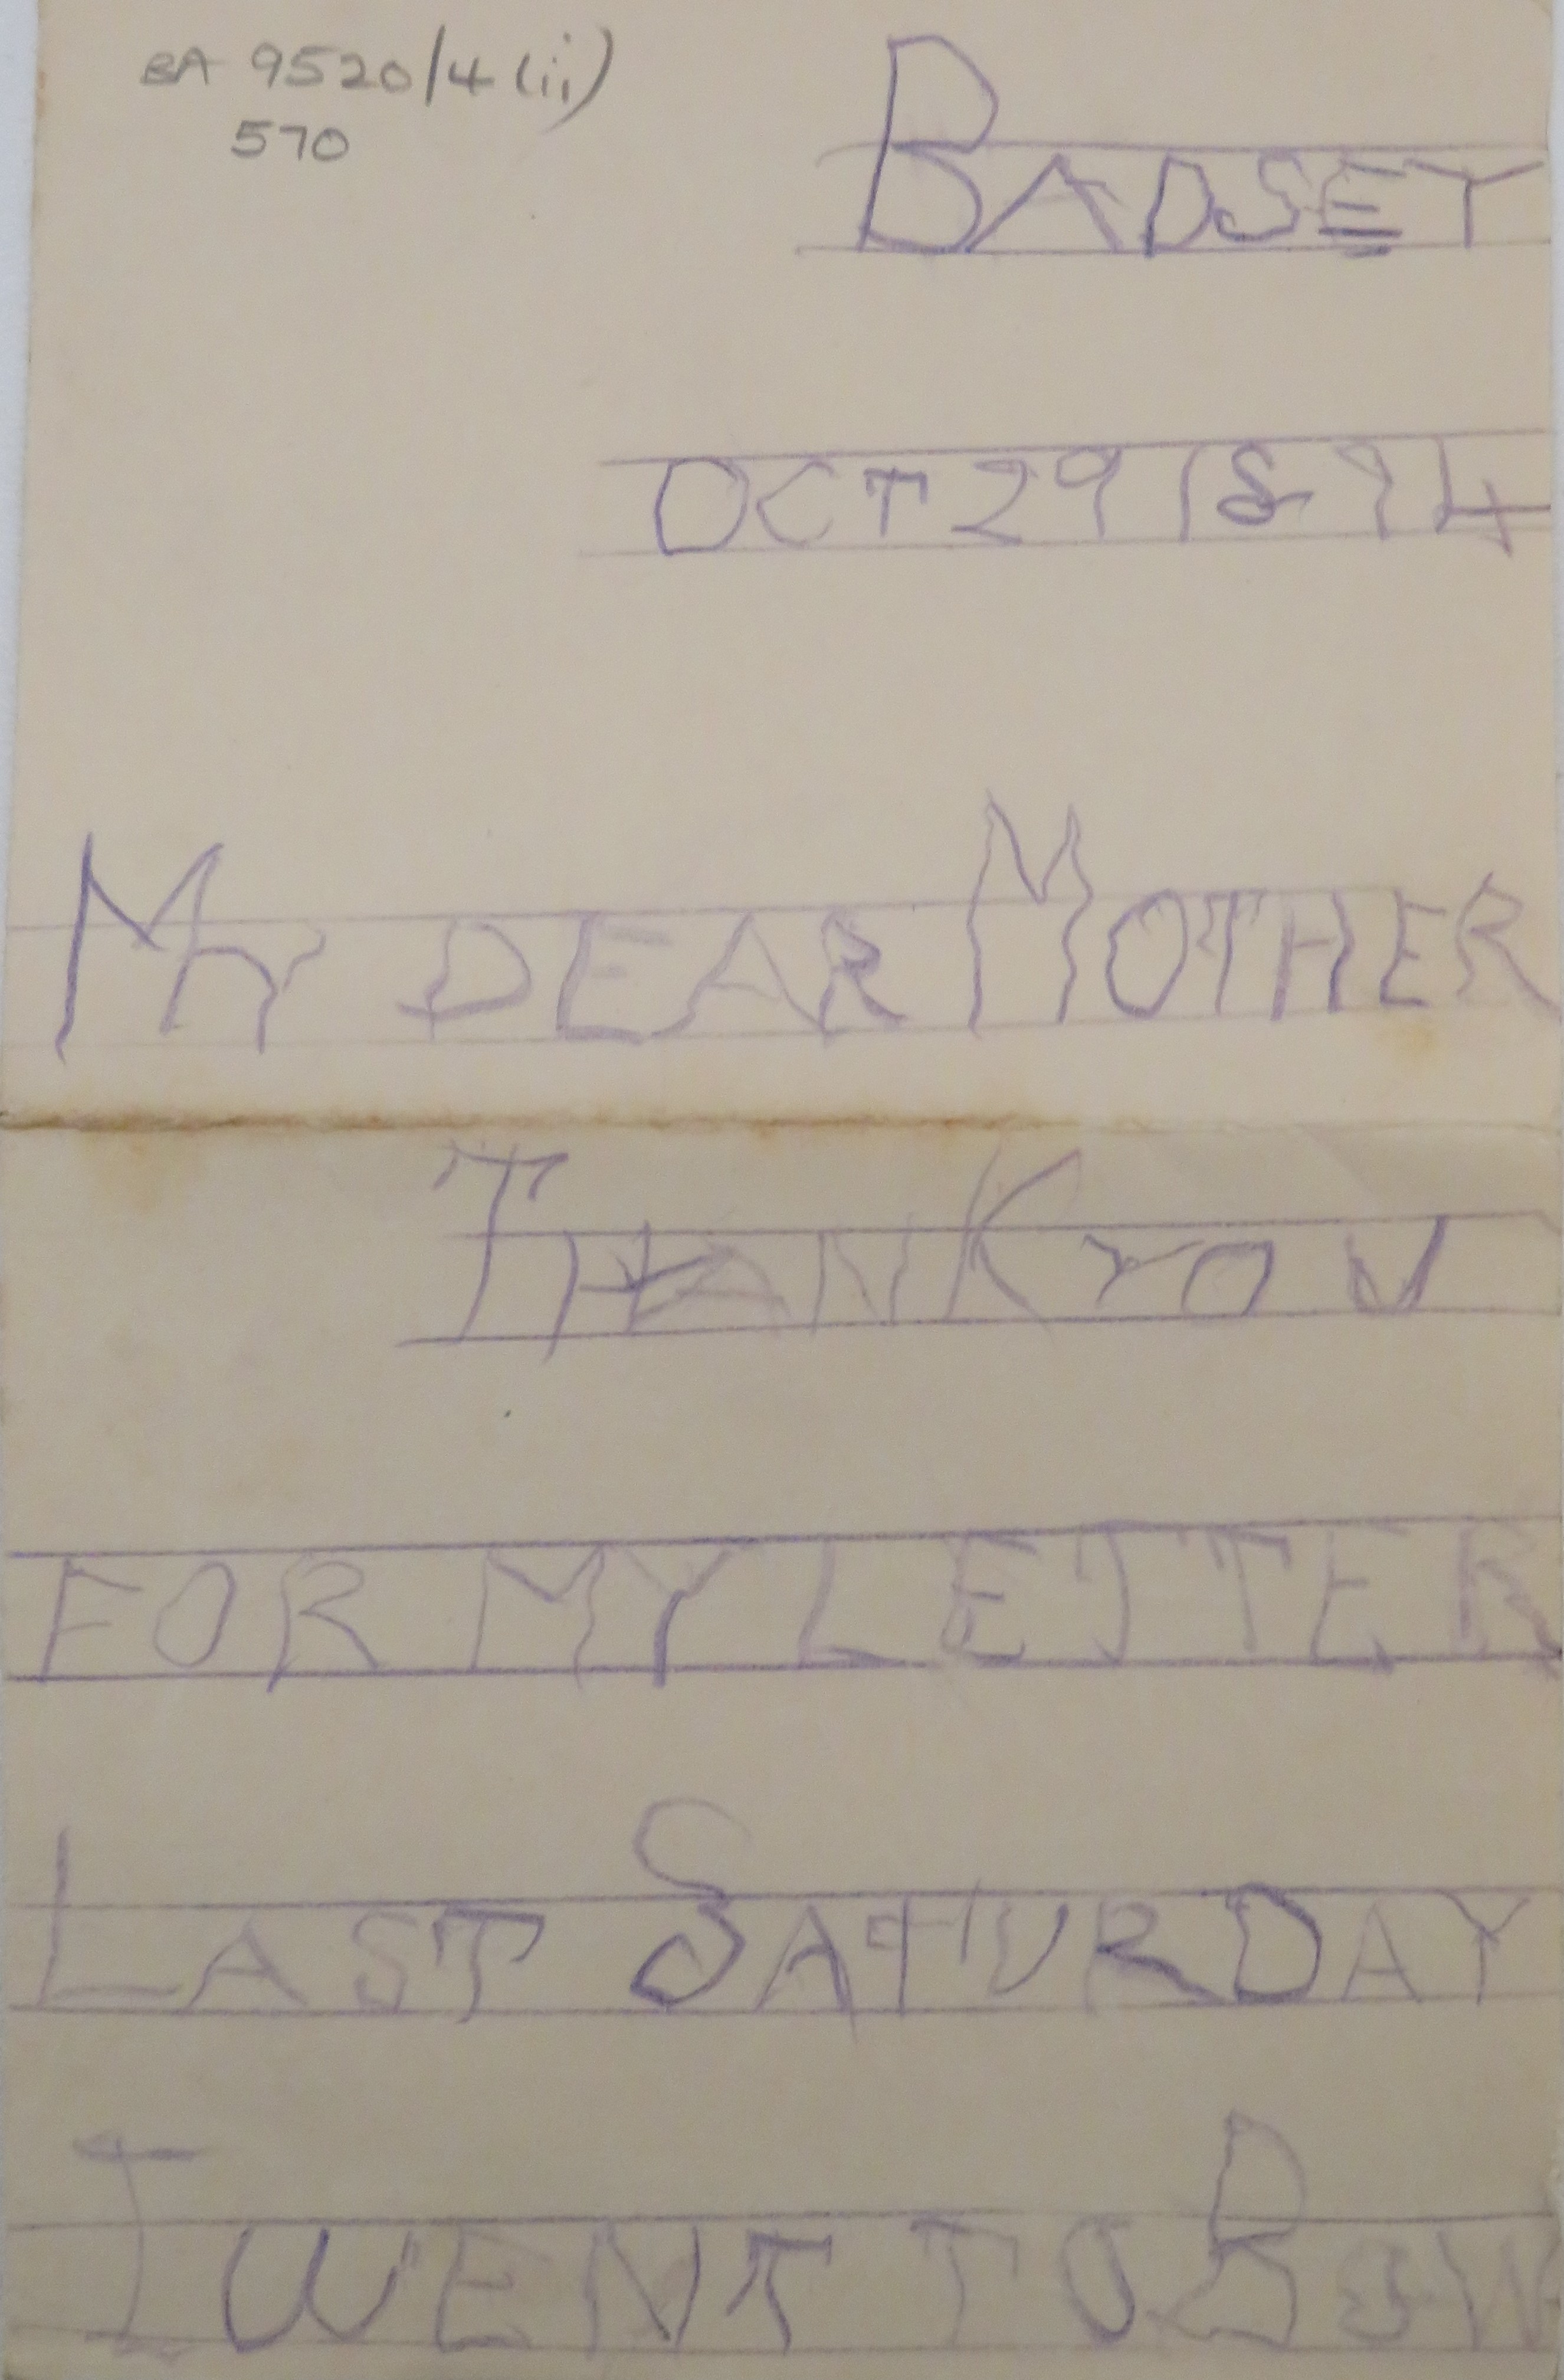 BA 9520/4 (ii)
570
BADSEY
OCT 29 1894
MY DEAR MOTHER
THANK YOU
FOR MY LETTER
LAST SATURDAY
I WENT TO BOW